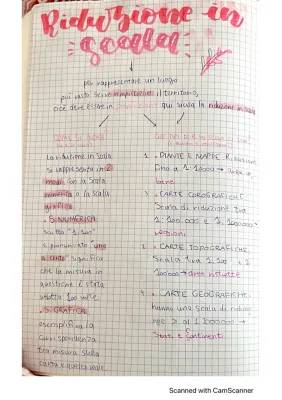 Riduzione in
scala
per rappresentare un luogo
più vasto serve rimpicciolire il territorio,
cioè deve essere in che guida la riduzione in scala
La riduzione in scala
si rappresenta in 2
modi con la scala
numerica e la scala
grafica
. S. NUMERICA
scritta "1:100"
si pronunciata uno
a cento significa
che la misura in
questione è stata
ridotta 100 volte
. S. GRAFICA
esemplifica la
corrispondenza
tra misura sulla
carta e quella reale
1 . PIANTE E MAPPE RIDUZIONE
fino a 1:10000 → aree
urbane
3 . CARTE COROGRAFICHE
Scala di riduzione tra
1:100.000 e 1:1000000
regioni
2 . CARTE TOPOGRAFICHE
Scala tra 1:10 e 1
100000 → aree ristrette
4 . CARTE GEOGRAFICHE
hanno una scala di riduzione
> di 1:1000000 →
Stati e Continenti
Scanned with CamScanner